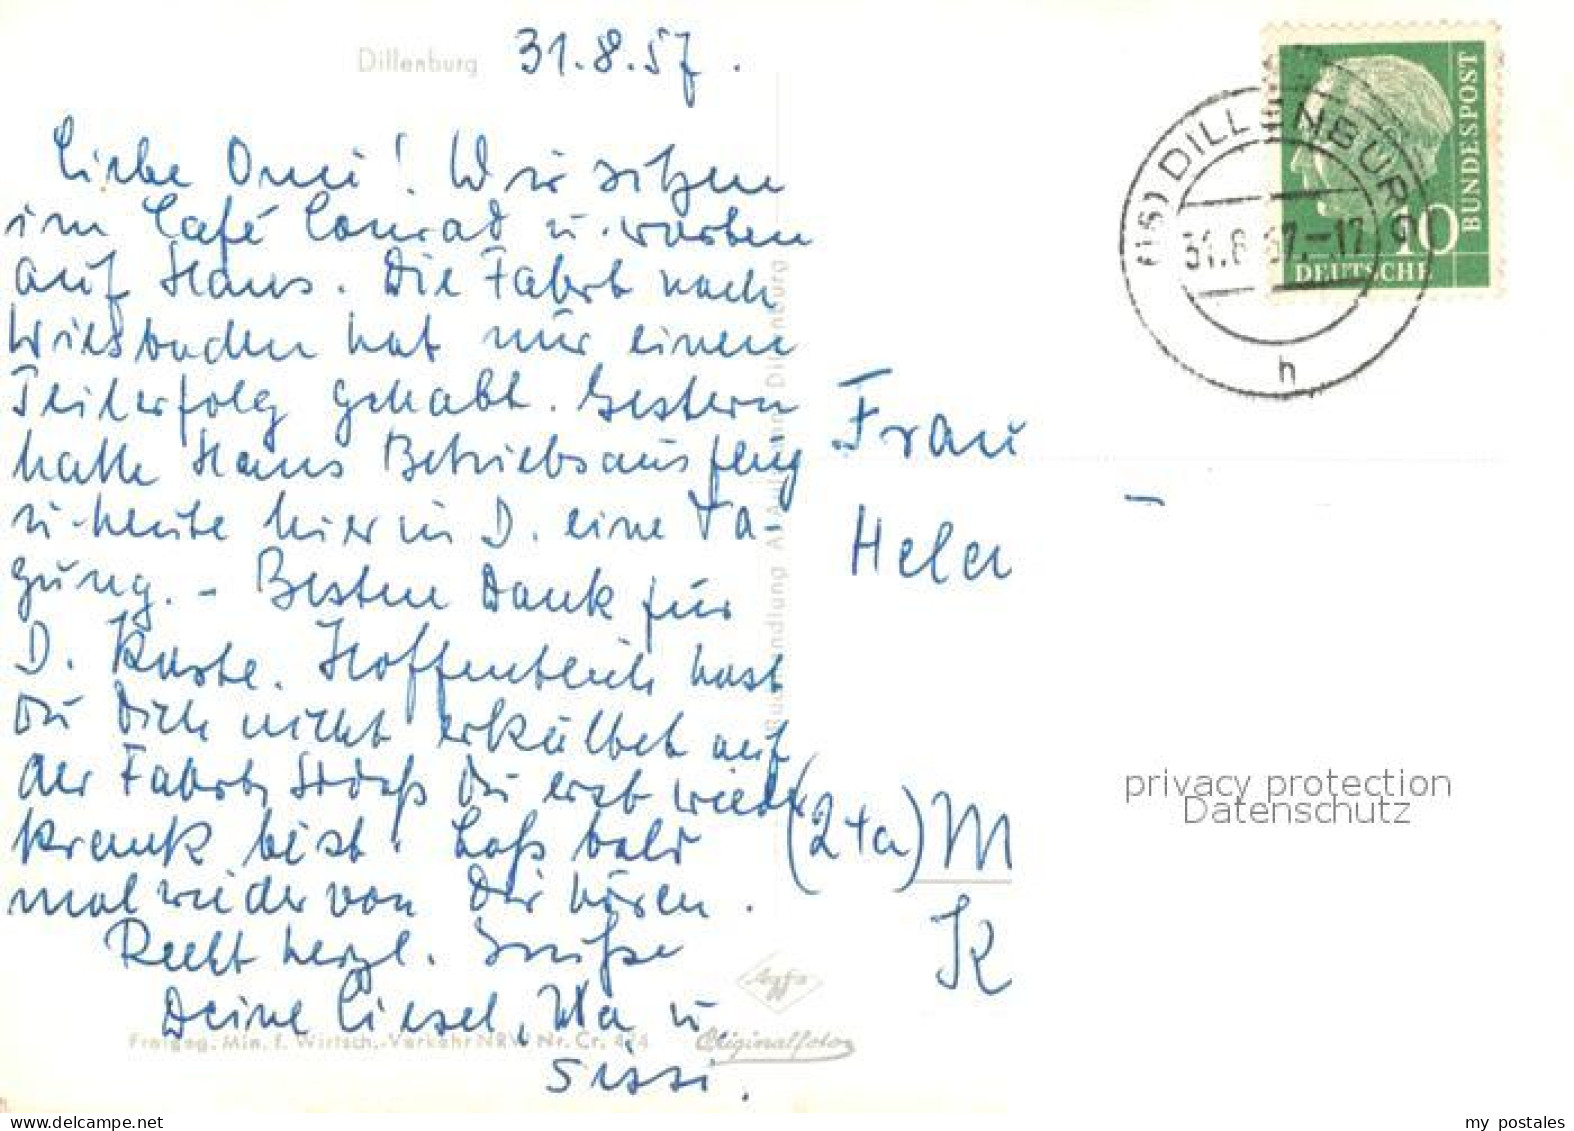 Dillenburg 31.8.57.
Liebe Omi! Wir sitzen
im Café Conrad u. warten
auf Hans. Die Fahrt nach
Wiesbaden hat nur einen
Teilerfolg gehabt. Gestern
hatte Hans Betriebsausflug
u. heute hier in D. eine Ta-
gung. - Besten Dank für
D. Karte. Hoffentlich hast
Du Dich nicht erkältet auf
der Fahrt, sodaß Du erst wieder
krank bist. Laß bald
mal wieder von Dir hören.
Recht herzl. Grüße
Deine Liesel, Ma u.
Sissi.
Freigeg. Min. f. Wirtsch.-Verkehr NRW Nr. Cr. 474
Agfa
Originalfoto
Dillenburg
(16) DILLENBURG
31.8.57.-17
h
10
DEUTSCHE
BUNDESPOST
Frau
Helen
(2+a) M
K
privacy protection
Datenschutz
my postales